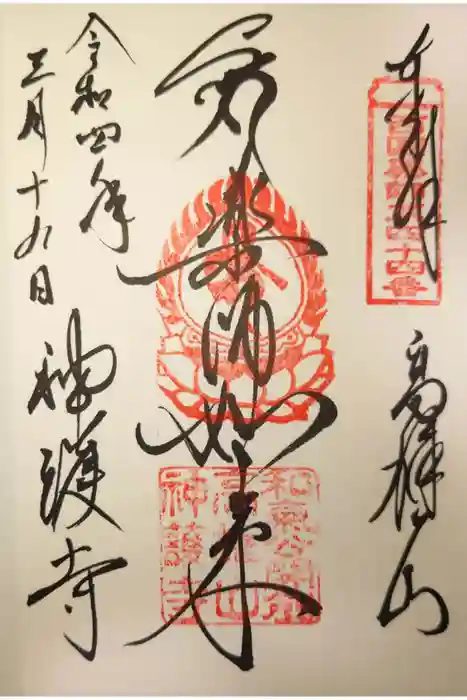 奉拝
西国薬師四十四番
高雄山
薬師如来
高雄山
神護寺
令和四年
三月十九日
神護寺